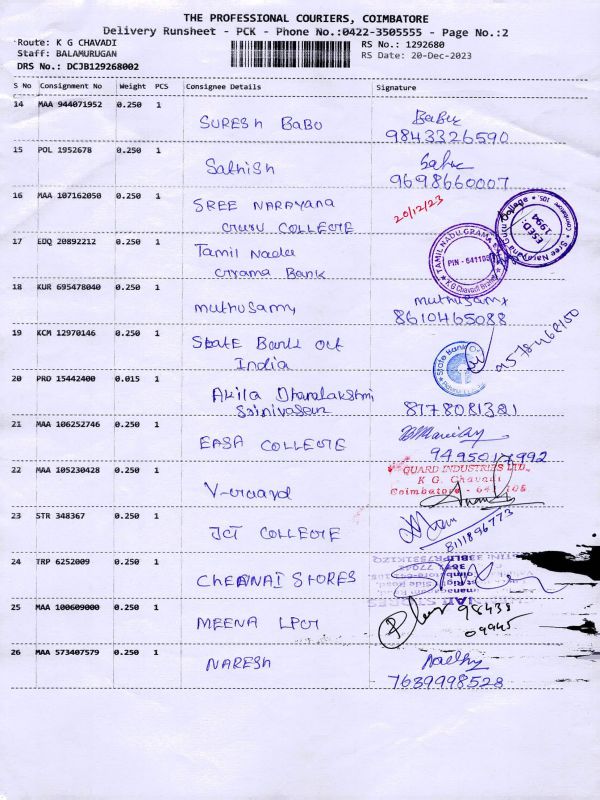 THE PROFESSIONAL COURIERS, COIMBATORE
Delivery Runsheet - PCK - Phone No.:0422-3505555 - Page No.:2
Route: K G CHAVADI
RS No.: 1292680
Staff: BALAMURUGAN
RS Date: 20-Dec-2023
DRS No.: DCJB129268002
S No Consignment No Weight PCS Consignee Details Signature
14 MAA 944071952 0.250 1
SURESH BABU
Babu
9843326590
15 POL 1952678 0.250 1
Sathish
9698660007
16 MAA 107162050 0.250 1
SREE NARAYANA
GURU COLLEGE
20/12/23
17 EDQ 20892212 0.250 1
Tamil Nadu
Grama Bank
TAMIL NADU GRAMA
PIN - 641105
K G Chavadi Branch
ESTD: 1994
18 KUR 695478040 0.250 1
muthusamy
muthusamy
8610465088
19 KCM 12970146 0.250 1
State Bank of
India
State Bank
20 PRO 15442400 0.015 1
Akila Dhanalakshmi
Srinivasan
8178081321
21 MAA 106252746 0.250 1
EASA COLLEGE
9495017992
22 MAA 105230428 0.250 1
V-Guard
GUARD INDUSTRIES LTD.,
K G. Chavadi
Coimbatore - 641 105
23 STR 348367 0.250 1
JCT COLLEGE
8111896773
24 TRP 6252009 0.250 1
CHENNAI STORES
25 MAA 100609000 0.250 1
MEENA LPG
98438
09945
26 MAA 573407579 0.250 1
NARESH
7639998528